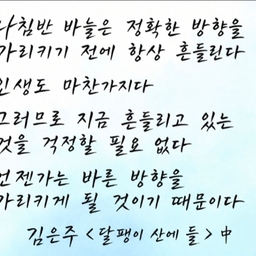 나침반 바늘은 정확한 방향을
가리키기 전에 항상 흔들린다
인생도 마찬가지다
그러므로 지금 흔들리고 있는
것을 걱정할 필요 없다
언젠가는 바른 방향을
가리키게 될 것이기 때문이다
김은주 <달팽이 산에 들> 中